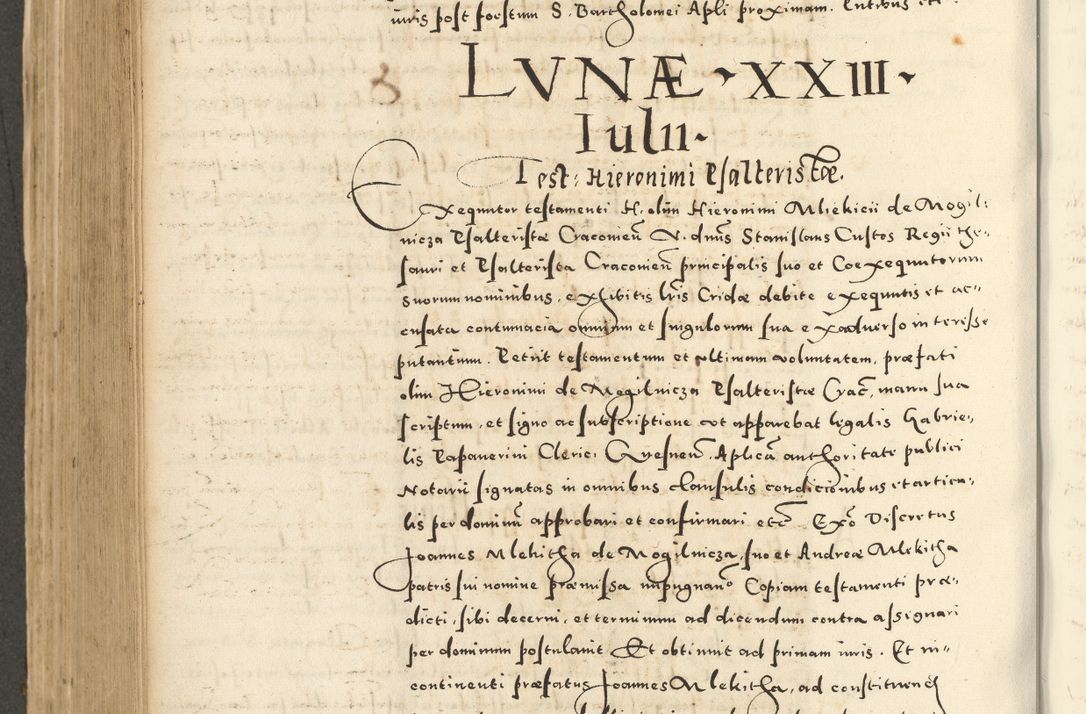 iuris post foestum S. Bartholomei Apli proximam.
LVNÆ XXIII
Iulii
Test: Hieronimi Psalteristæ.
Exequutor testamenti H. olim Hieronimi Mliekicii de Mogil:
nicza Psalteristæ Craconień V. dnus Stanislaus Custos Regii The:
sauri et Psalterista Craconień principalis suo et Coexequutorum
suorum nominibus, exhibitis lris Cridæ debite exequutis et ac:
cusata contumacia omnium et singulorum sua exadverso interesse
putantium. Petiit testamentum et ultimam voluntatem, præfati
olim Hieronimi de Mogilnicza Psalteristæ Crac, manu sua
scriptum, et signo ac subscriptione ut apparebat legalis Gabrie:
lis Clerici Gnesneń. Aplica authoritate publici
Notarii signatas in omnibus clausulis condicionibus et articu:
lis per dominum approbari et confirmari etc. Exo Discretus
Joannes Mlekitha de Mogilnicza, suo et Andreæ Mlekitha
patris sui nomine præmissa impugnano Copiam testamenti præ:
dicti, sibi decerni, et terminum ad dicendum contra assignari
per dominum postulavit Et obtinuit ad primam iuris. Et in:
continenti præfatus Joannes Mlekitha, ad constituend